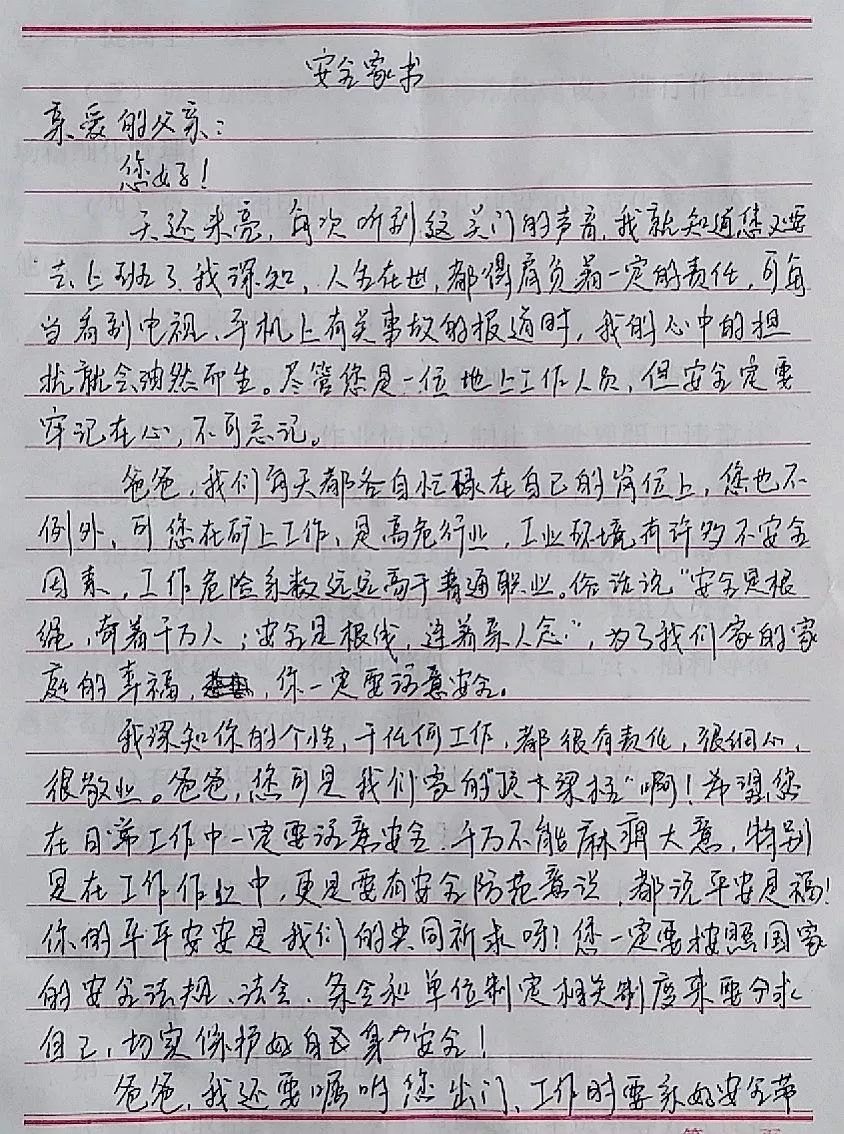 安全家书
亲爱的父亲:
您好!
天还未亮,每次听到这关门的声音,我就知道您又要
去上班了。我深知,人生在世,都得肩负着一定的责任,可每
当看到电视、手机上有关事故的报道时,我的心中的担
忧就会油然而生。尽管您是一位地上工作人员,但安全定要
牢记在心,不可忘记。
爸爸,我们每天都各自忙碌在自己的岗位上,您也不
例外,可您在矿上工作,是高危行业,工业环境有许多不安全
因素,工作危险系数远远高于普通职业。俗话说“安全是根
绳,牵着千万人;安全是根线,连着亲人念”,为了我们家的家
庭的幸福,你一定要注意安全。
我深知你的个性,干任何工作,都很有责任,很细心,
很敬业。爸爸,您可是我们家的“顶梁柱”啊!希望您
在日常工作中一定要注意安全,千万不能麻痹大意,特别
是在工作作业中,更是要有安全防范意识,都说平安是福!
你的平平安安是我们的共同祈求呀!您一定要按照国家
的安全法规、法令、条令和单位制定相关制度来要求
自己,切实保护好自己身安全!
爸爸,我还要嘱咐您出门、工作时要系好安全带